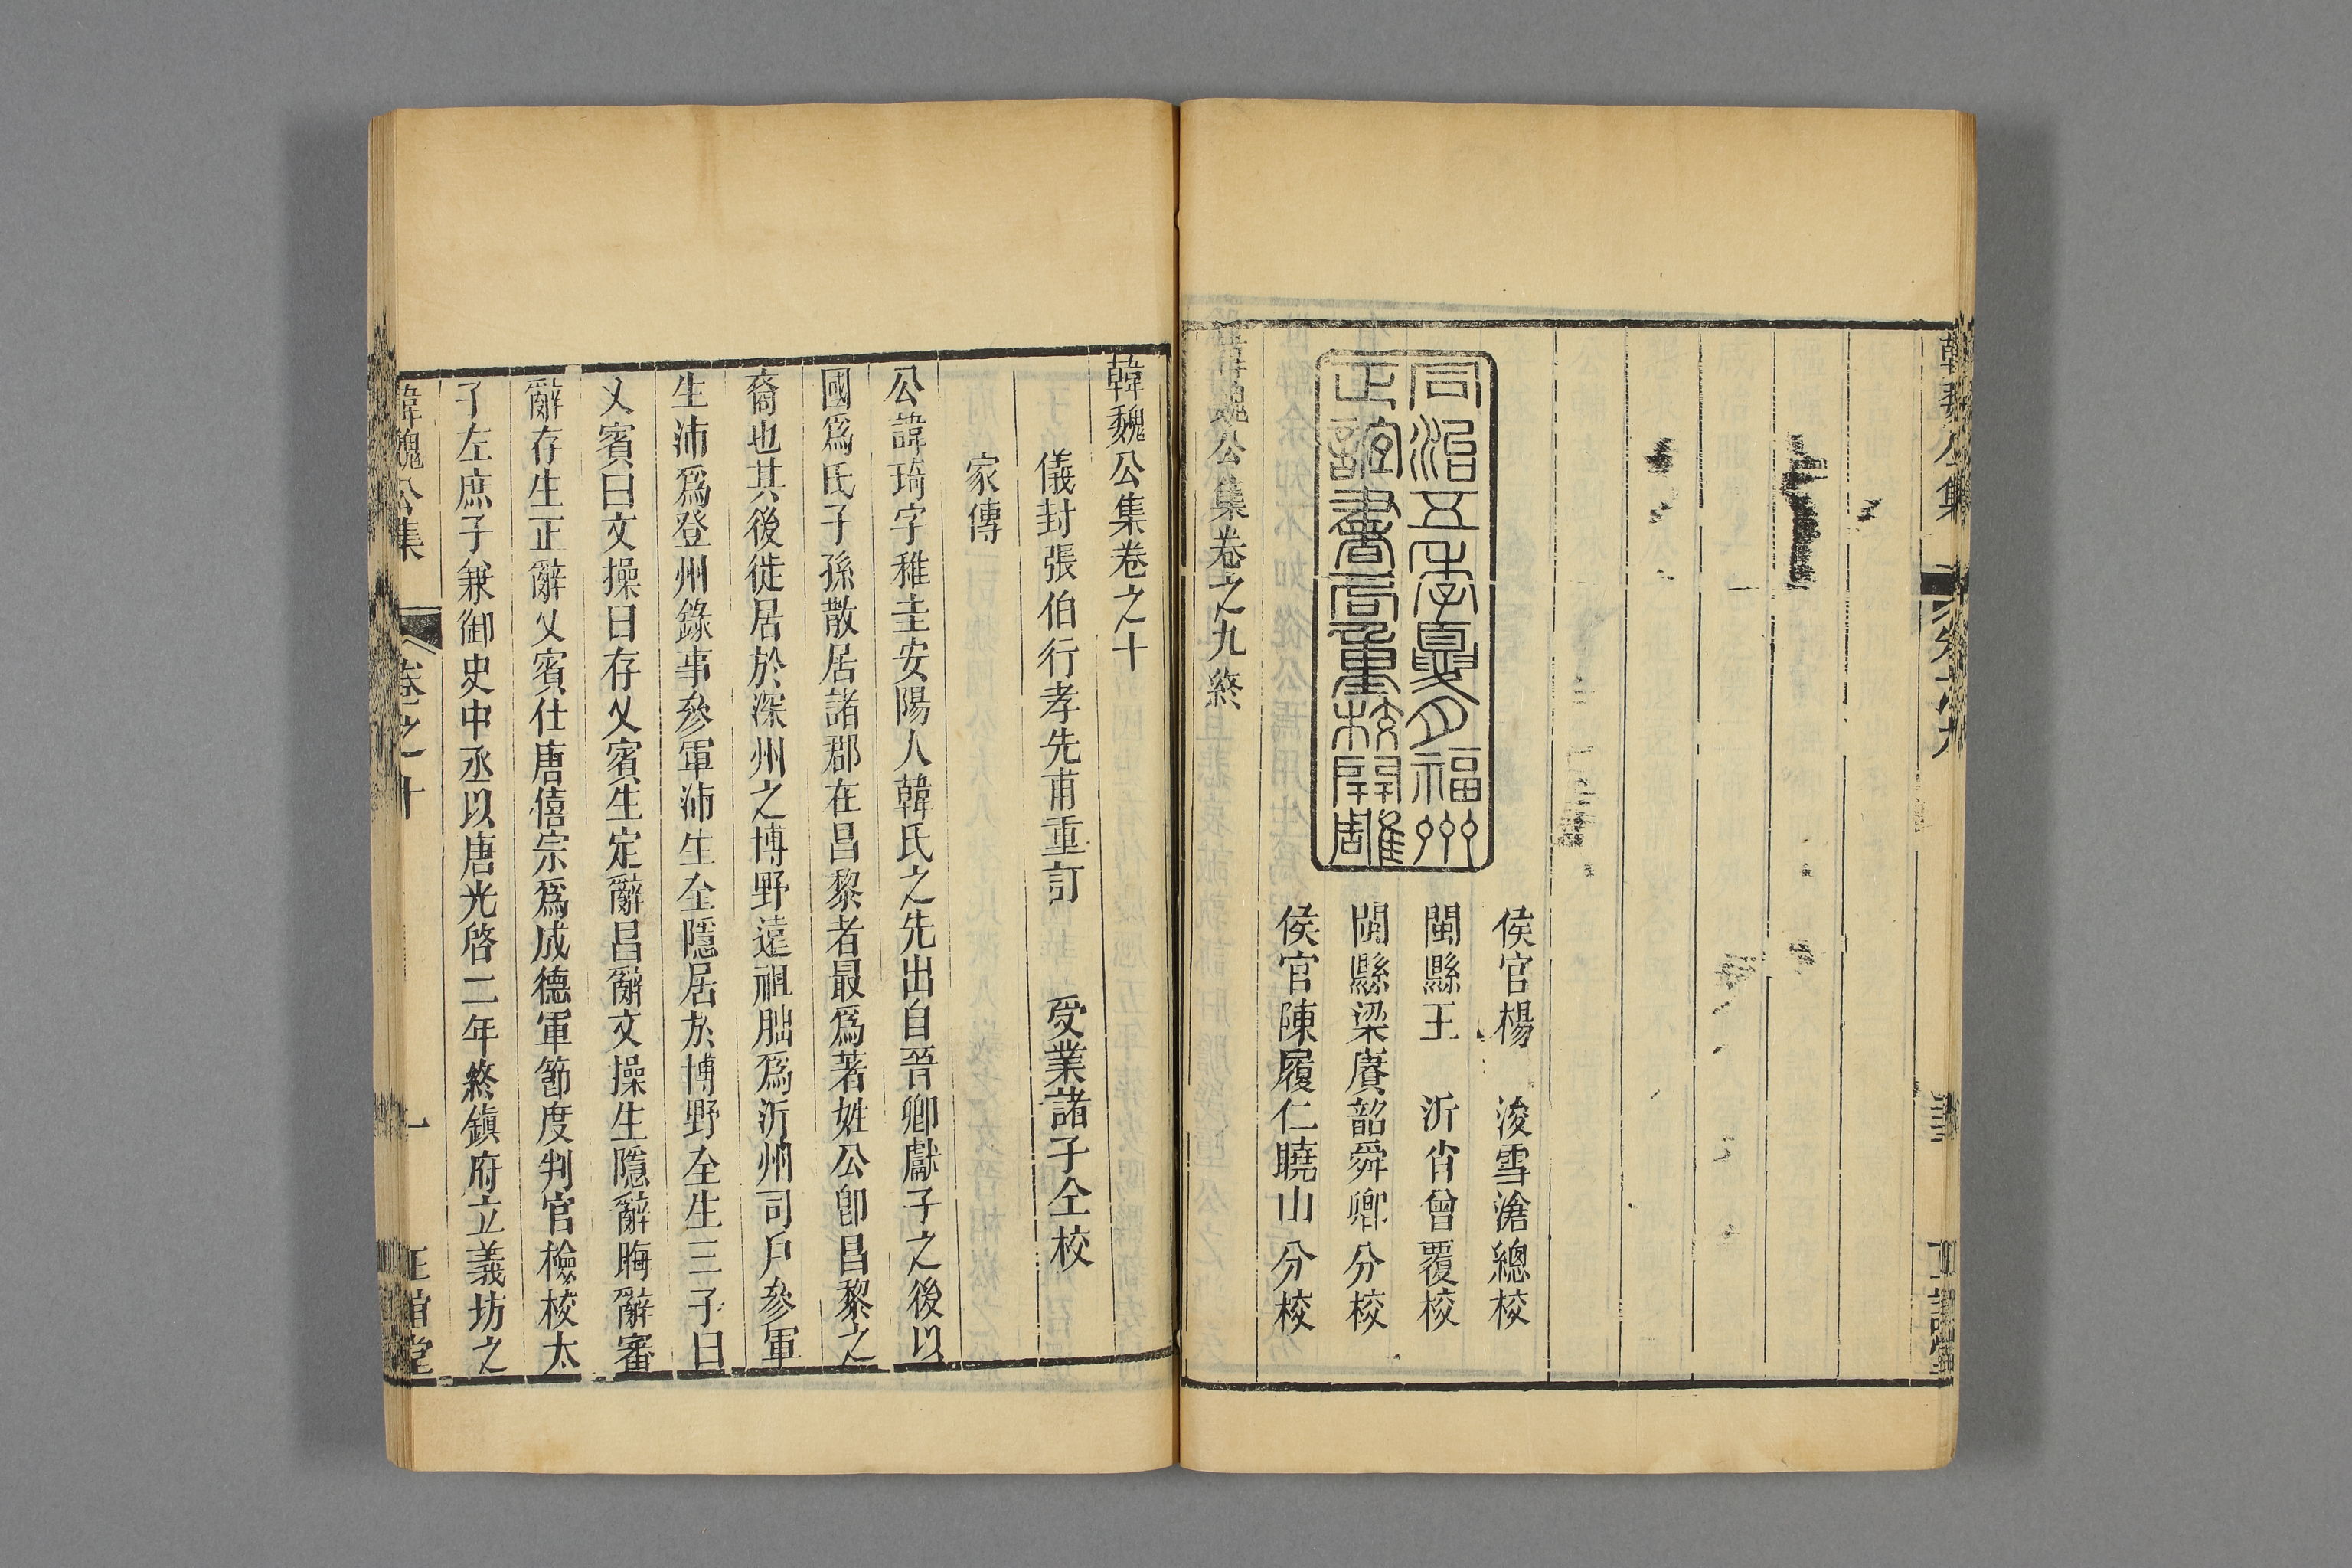 韓魏公集
卷之九
正誼堂
侯官楊　浚雪滄總校
閩縣王　沂省曾覆校
閩縣梁賡韶舜卿分校
侯官陳履仁曉山分校
同治五年夏月福州
正誼書局重校開雕
韓魏公集卷之九終
韓魏公集卷之十
儀封張伯行孝先甫重訂　受業諸子仝校
家傳
公諱琦字稚圭安陽人韓氏之先出自晉卿獻子之後以
國爲氏子孫散居諸郡在昌黎者最爲著姓公卽昌黎之
裔也其後徙居於深州之博野遠祖朏爲沂州司戶參軍
生沛爲登州錄事參軍沛生全隱居於博野全生三子曰
乂賓曰文操曰存乂賓生定辭昌辭文操生隱辭晦辭審
辭存生正辭乂賓仕唐僖宗爲成德軍節度判官檢校太
子左庶子兼御史中丞以唐光啓二年終鎭府立義坊之
韓魏公集
卷之十
一
正誼堂